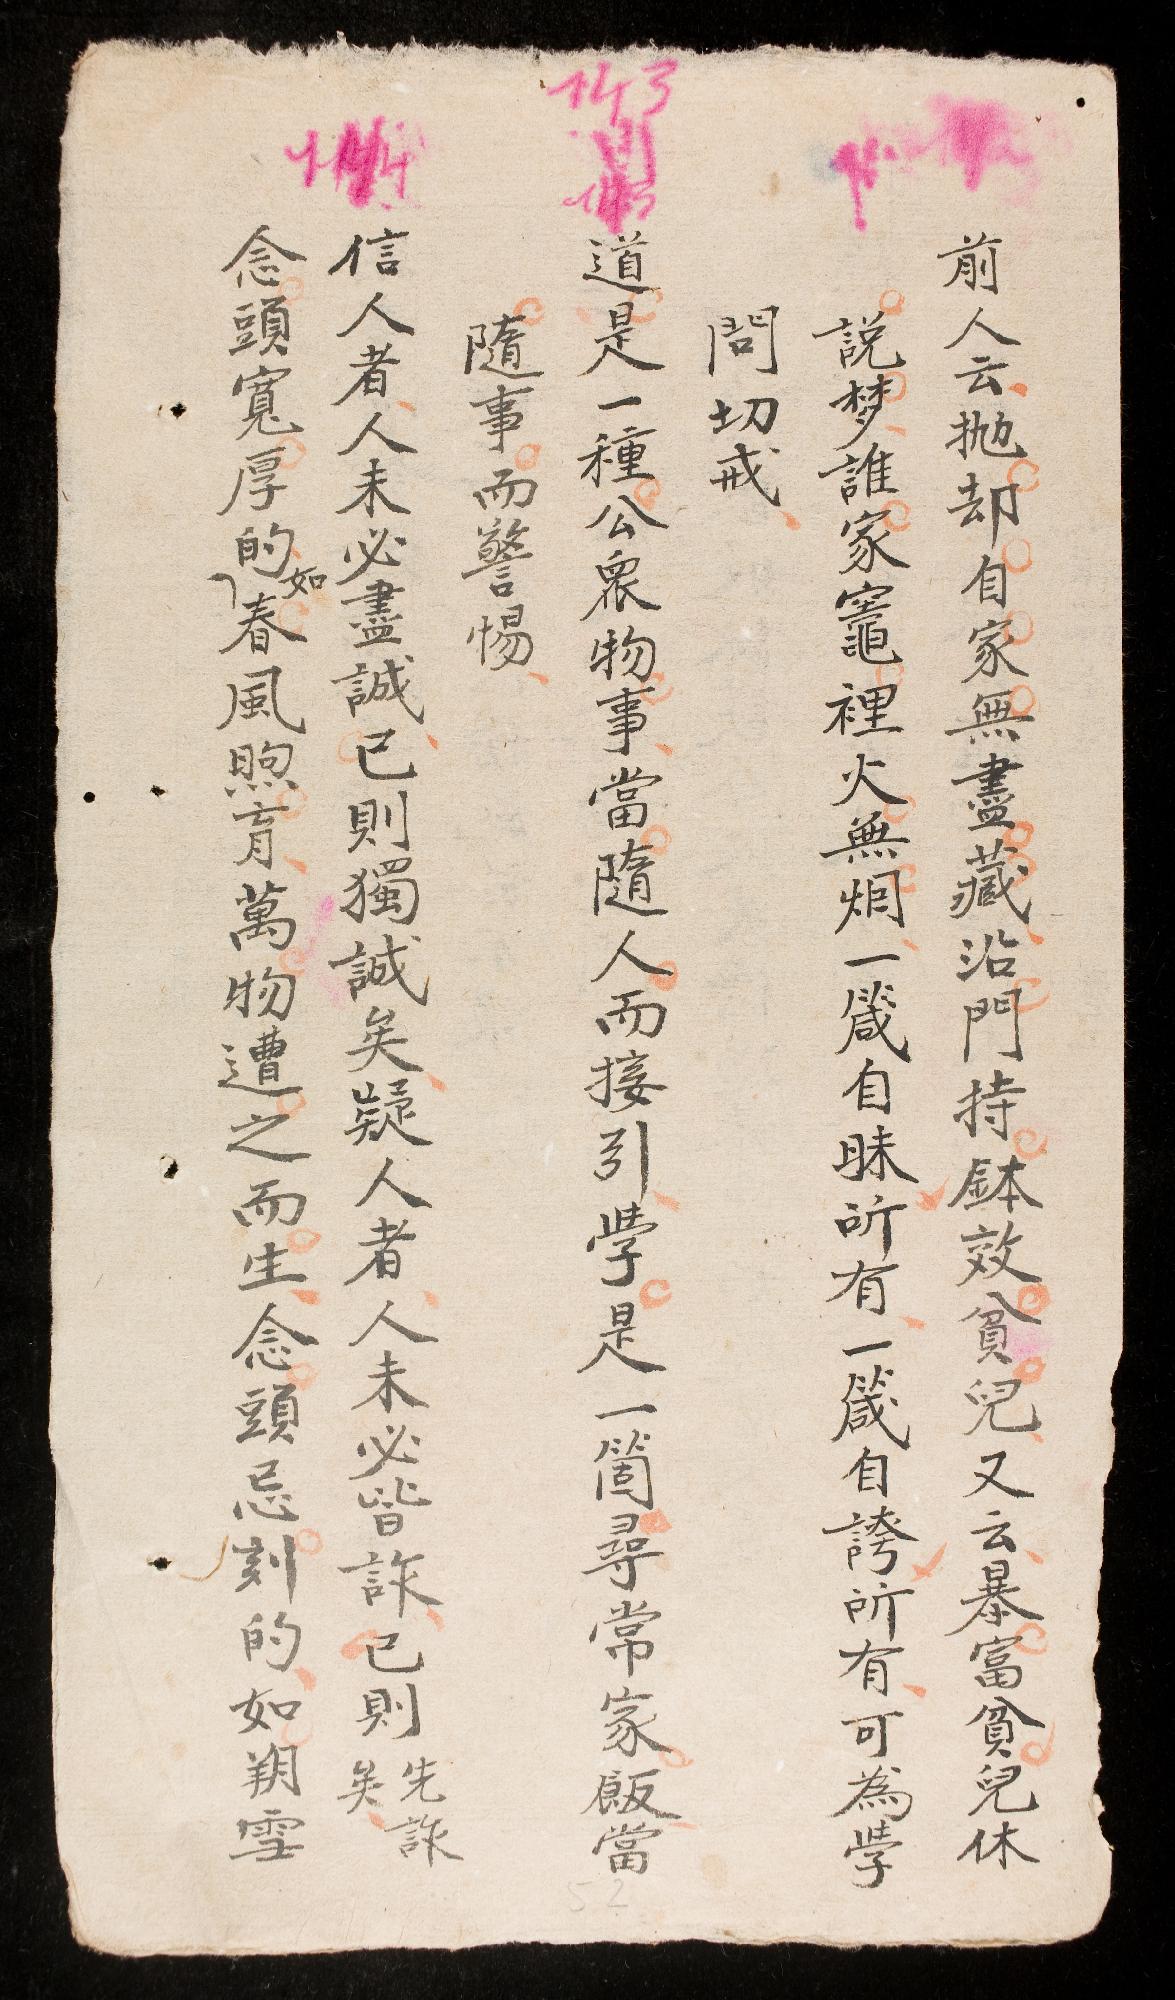 前人云抛却自家無盡藏沿門持鉢效貧兒又云暴富貧兒休
説梦誰家竈裡火無烟一箴自昧所有一箴自誇所有可為學
問切戒
道是一種公衆物事當隨人而接引學是一箇尋常家飯當
隨事而警惕
信人者人未必盡誠已則獨誠矣疑人者人未必皆詐已則先詐矣
念頭寬厚的如春風煦育萬物遭之而生念頭忌刻的如朔雪
52